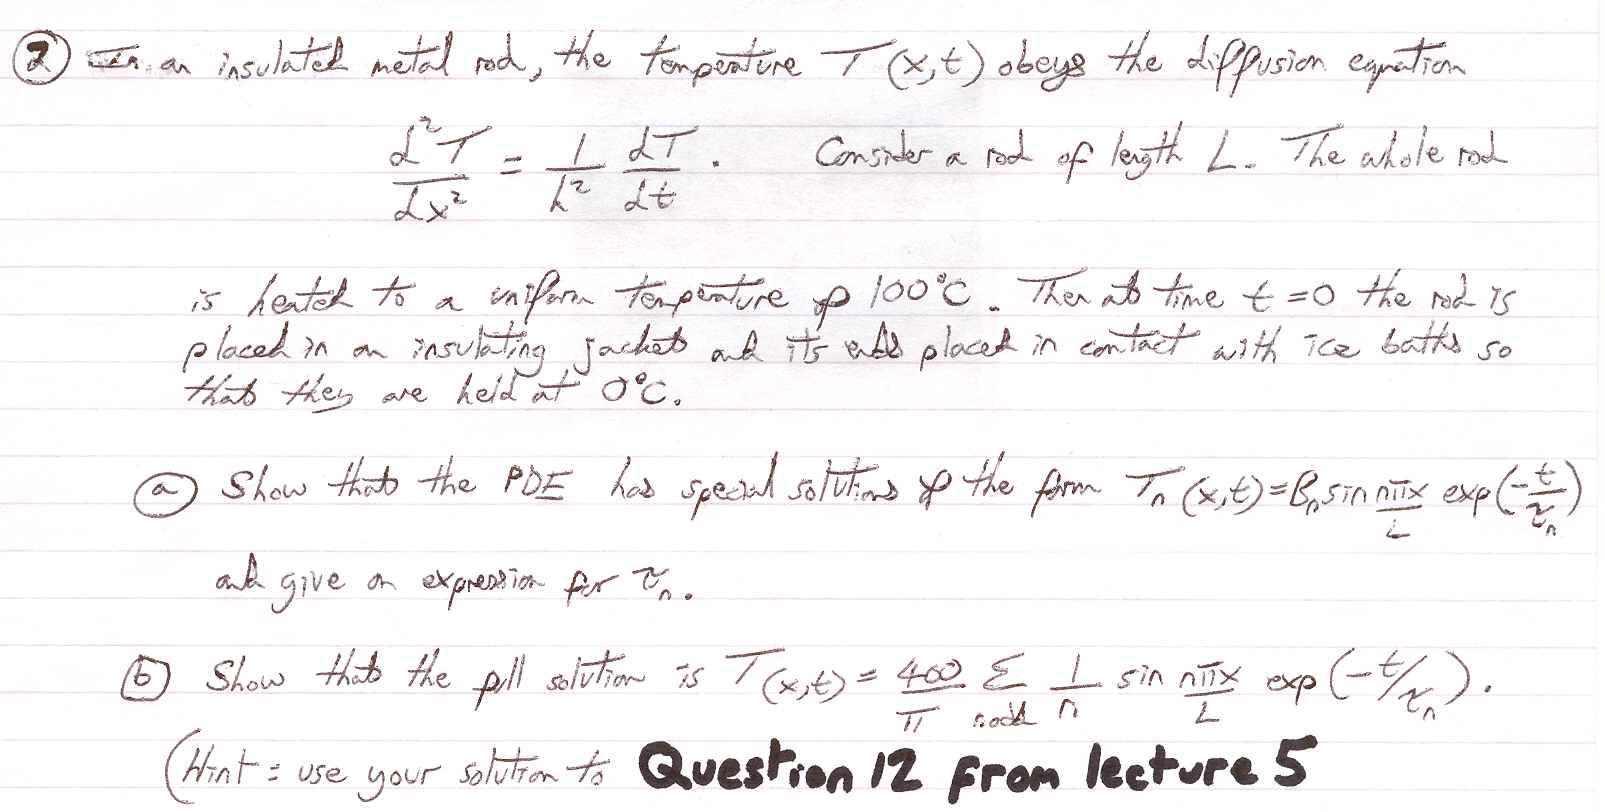 ② In an insulated metal rod, the temperature T(x,t) obeys the diffusion equation
d²T/dx² = 1/h² dT/dt. Consider a rod of length L. The whole rod
is heated to a uniform temperature of 100°C. Then at time t=0 the rod is
placed in an insulating jacket and its ends placed in contact with ice baths so
that they are held at 0°C.
ⓐ Show that the PDE has special solutions of the form Tₙ(x,t)=Bₙ sin nπx/L exp(-t/τₙ)
and give an expression for τₙ.
ⓑ Show that the full solution is T(x,t) = 400/π Σ n odd 1/n sin nπx/L exp(-t/τₙ).
(Hint: use your solution to Question 12 from lecture 5